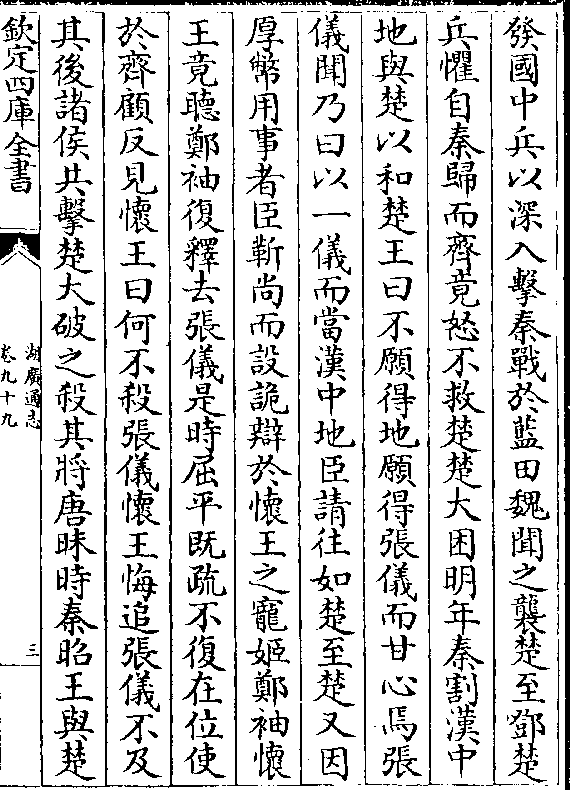 發國中兵以深入擊秦戰於藍田魏聞之襲楚至鄧楚
兵懼自秦歸而齊竟怒不救楚楚大困明年秦割漢中
地與楚以和楚王曰不願得地願得張儀而甘心焉張
儀聞乃曰以一儀而當漢中地臣請往如楚至楚又因
厚幣用事者臣靳尚而設詭辯於懷王之寵姬鄭袖懷
王竟聽鄭袖復釋去張儀是時屈平既疏不復在位使
於齊顧反見懷王曰何不殺張儀懷王悔追張儀不及
其後諸侯共擊楚大破之殺其將唐昧時秦昭王與楚
欽定四庫全書
湖廣通志
卷九十九
三